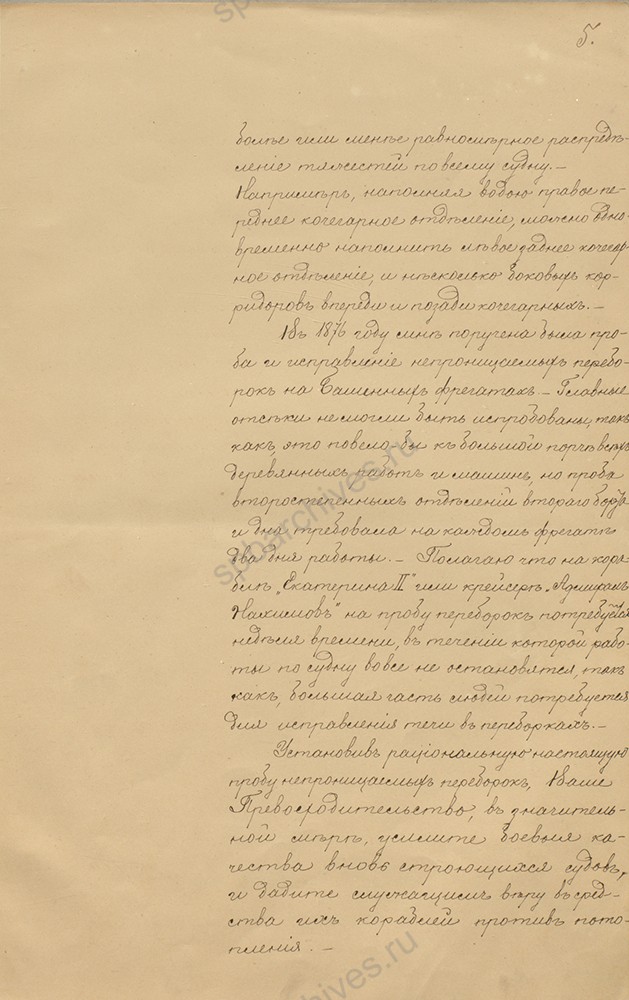 5.
болѣе или менѣе равномѣрное распредѣ-
леніе тяжестей по всему судну. –
Напримѣръ, наполняя водою правое пе-
реднее кочегарное отдѣленіе, можно одно-
временно наполнить лѣвое заднее кочегар-
ное отдѣленіе, и нѣсколько боковыхъ кор-
ридоровъ впереди и позади кочегарныхъ. –
Въ 1876 году мнѣ поручена была про-
ба и исправленіе непроницаемыхъ перебо-
рокъ на Башенныхъ фрегатахъ. – Главные
отсѣки не могли быть испробованы, такъ
какъ, это повело-бы къ большой порчѣ всѣхъ
деревянныхъ работъ и машинъ, но проба
второстепенныхъ отдѣленій втораго борта
и дна требовала на каждомъ фрегатѣ
два дня работы. – Полагаю что на кора-
блѣ „Екатерина II" или крейсерѣ „Адмиралъ
Нахимовъ" на пробу переборокъ потребуется
недѣля времени, въ теченіи которой рабо-
ты по судну вовсе не остановятся, такъ
какъ, большая часть людей потребуется
для исправленія течи въ переборкахъ. –
Установивъ раціональную настоящую
пробу непроницаемыхъ переборокъ, Ваше
Превосходительство, въ значитель-
ной мѣрѣ, усилите боевыя ка-
чества вновь строющихся судовъ,
и дадите служащимъ вѣру въ сред-
ства ихъ кораблей противъ пото-
пленія. –
spbarchives.ru
spbarchives.ru
spbarchives.ru